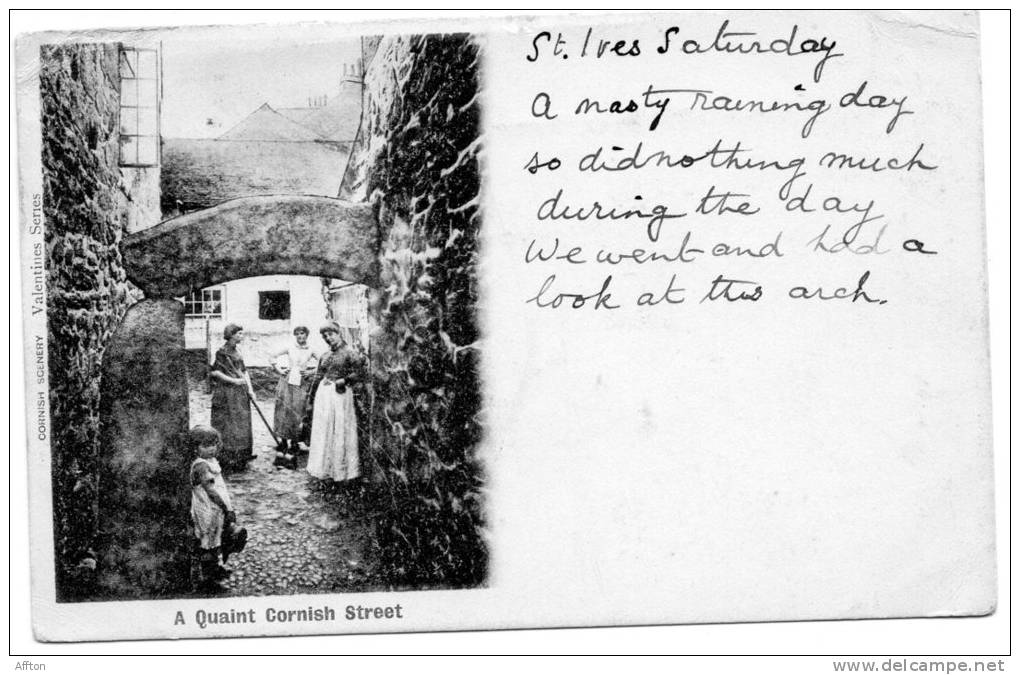 St. Ives Saturday
A nasty raining day
so did nothing much
during the day
We went and had a
look at this arch.
CORNISH SCENERY Valentines Series
A Quaint Cornish Street
Affton
www.delcampe.net